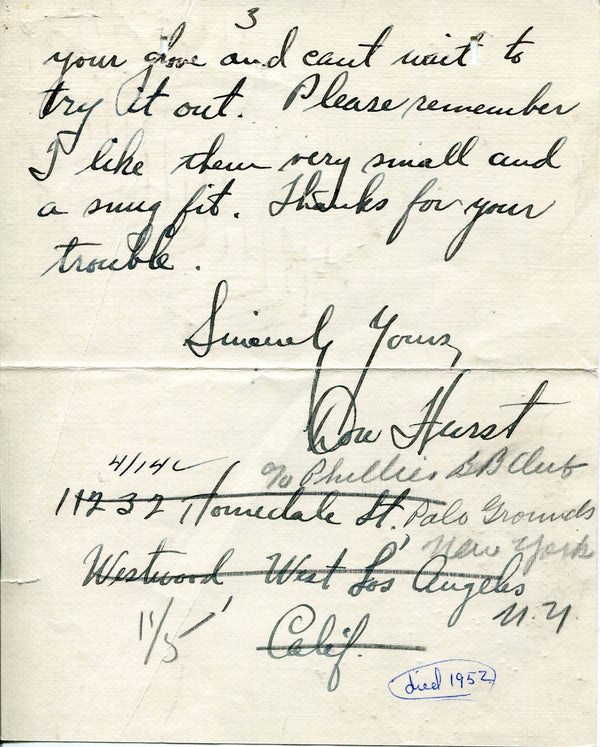 3
your glove and cant wait to
try it out. Please remember
I like them very small and
a snug fit. Thanks for your
trouble.
Sincerely Yours,
Don Hurst
4/14
c/o Phillies B B Club
11232 Homedale St.
Polo Grounds
New York
Westwood West Los Angeles
N.Y.
11/5
Calif.
died 1952